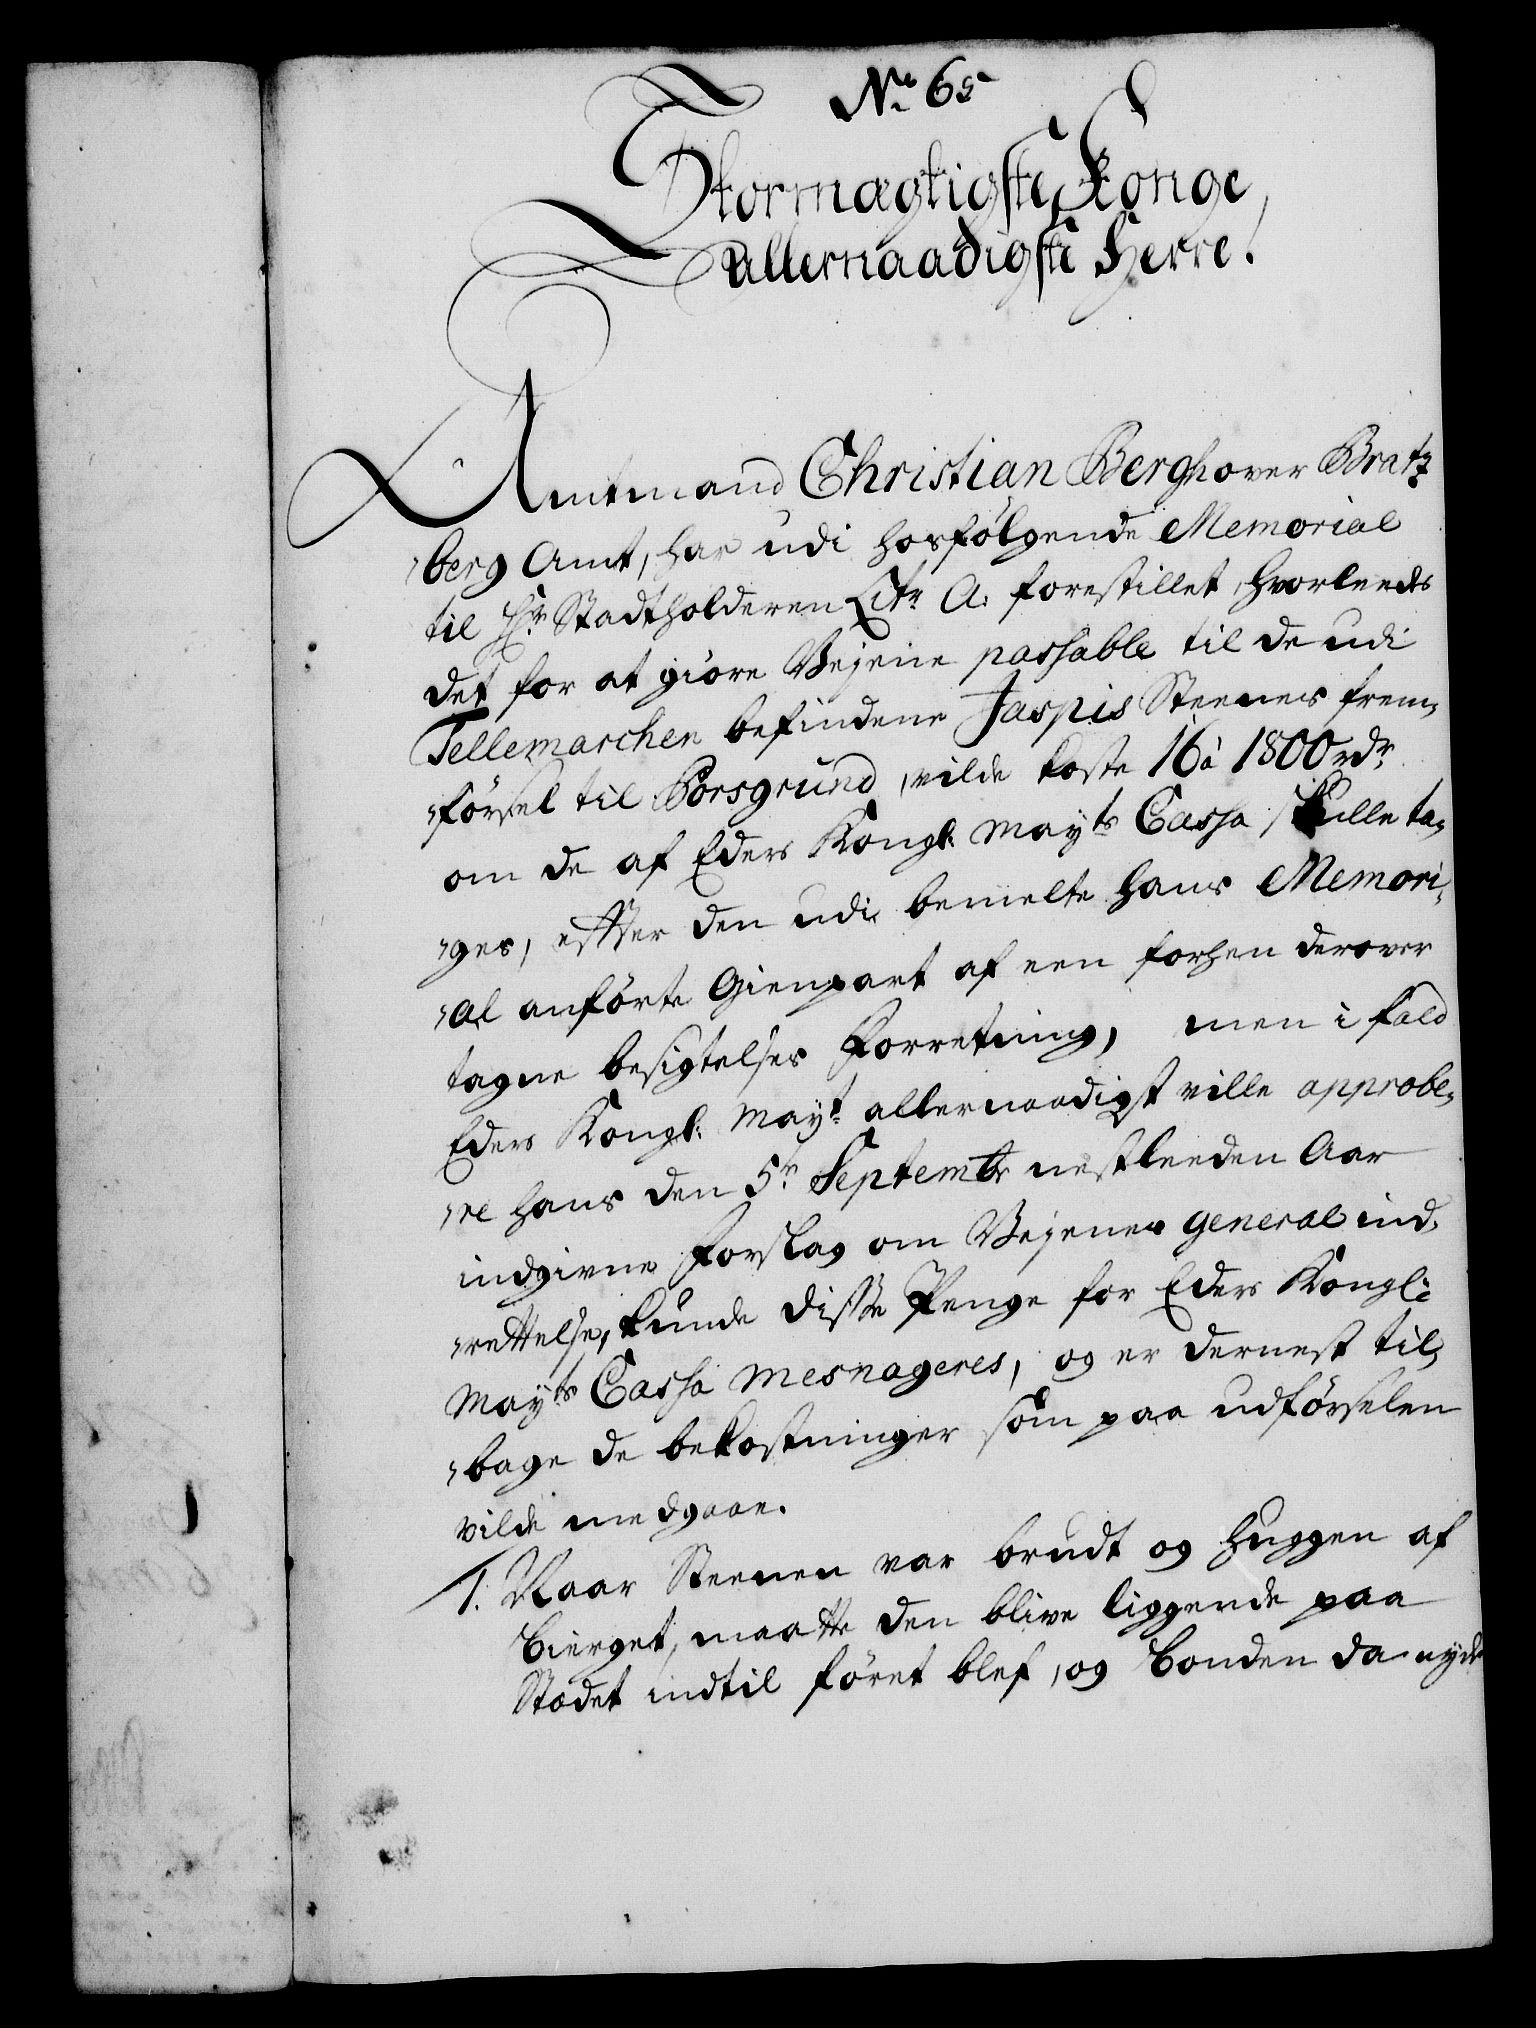 No 65
Stormægtigste Konge,
Allernaadigste Herre!
Amtmand Christian Bergh over Bratz
berg Amt, har udi hosfølgende Memorial
til Hr Stadtholderen Litr A. forestillet, hvorleedes
det for at giøre Vejene passable til de udi
Tellemarchen befindene Jaspis Steenes frem,
førsel til Porsgrund, vilde koste 16 à 1800 rdr
om de af Eders Kongl: Mayts Cassa skulle ta,
ges, effter den udi bemelte hans Memori,
al anførte Gienpart af een forhen derover
tagne besigtelses Forretning, men i fald
Eders Kongl: Mayt allernaadigst ville approbe,
re hans den 5te Septembr nestleeden Aar
indgivne Forslag om Vejenes general ind,
rettelse, kunde disse Penge for Eders Kongli
Mayts Cassa mesnageres, og er dernest til,
bage de bekostninger som paa udførselen
vilde medgaae.
1. Naar Steenen var brudt og huggen af
Bierget, maatte den blive liggende paa
Stedet indtil føret blef, og bonden da nyde